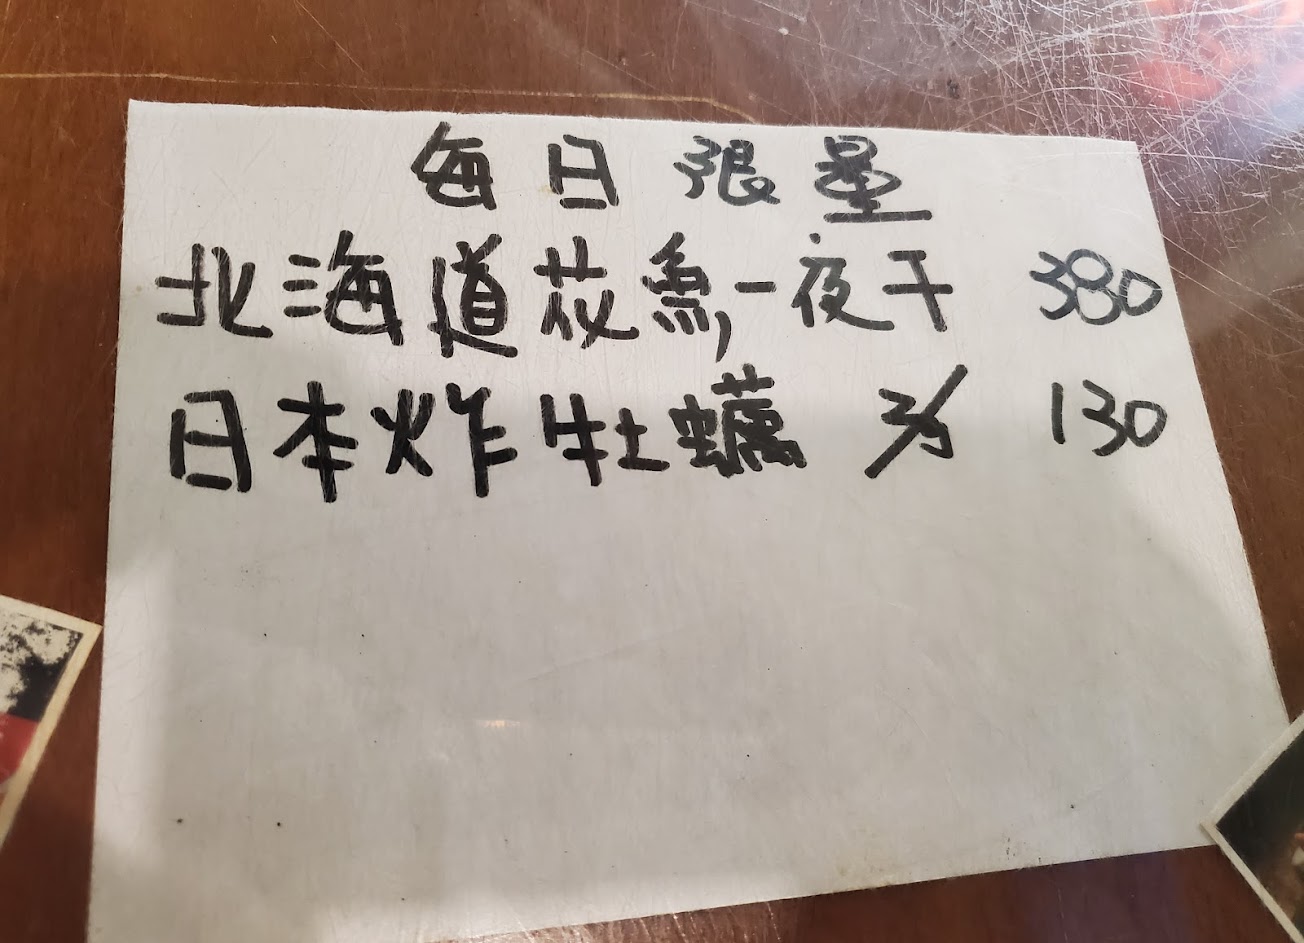 每日限量
北海道花魚一夜干 380
日本炸牡蠣 2/5 130